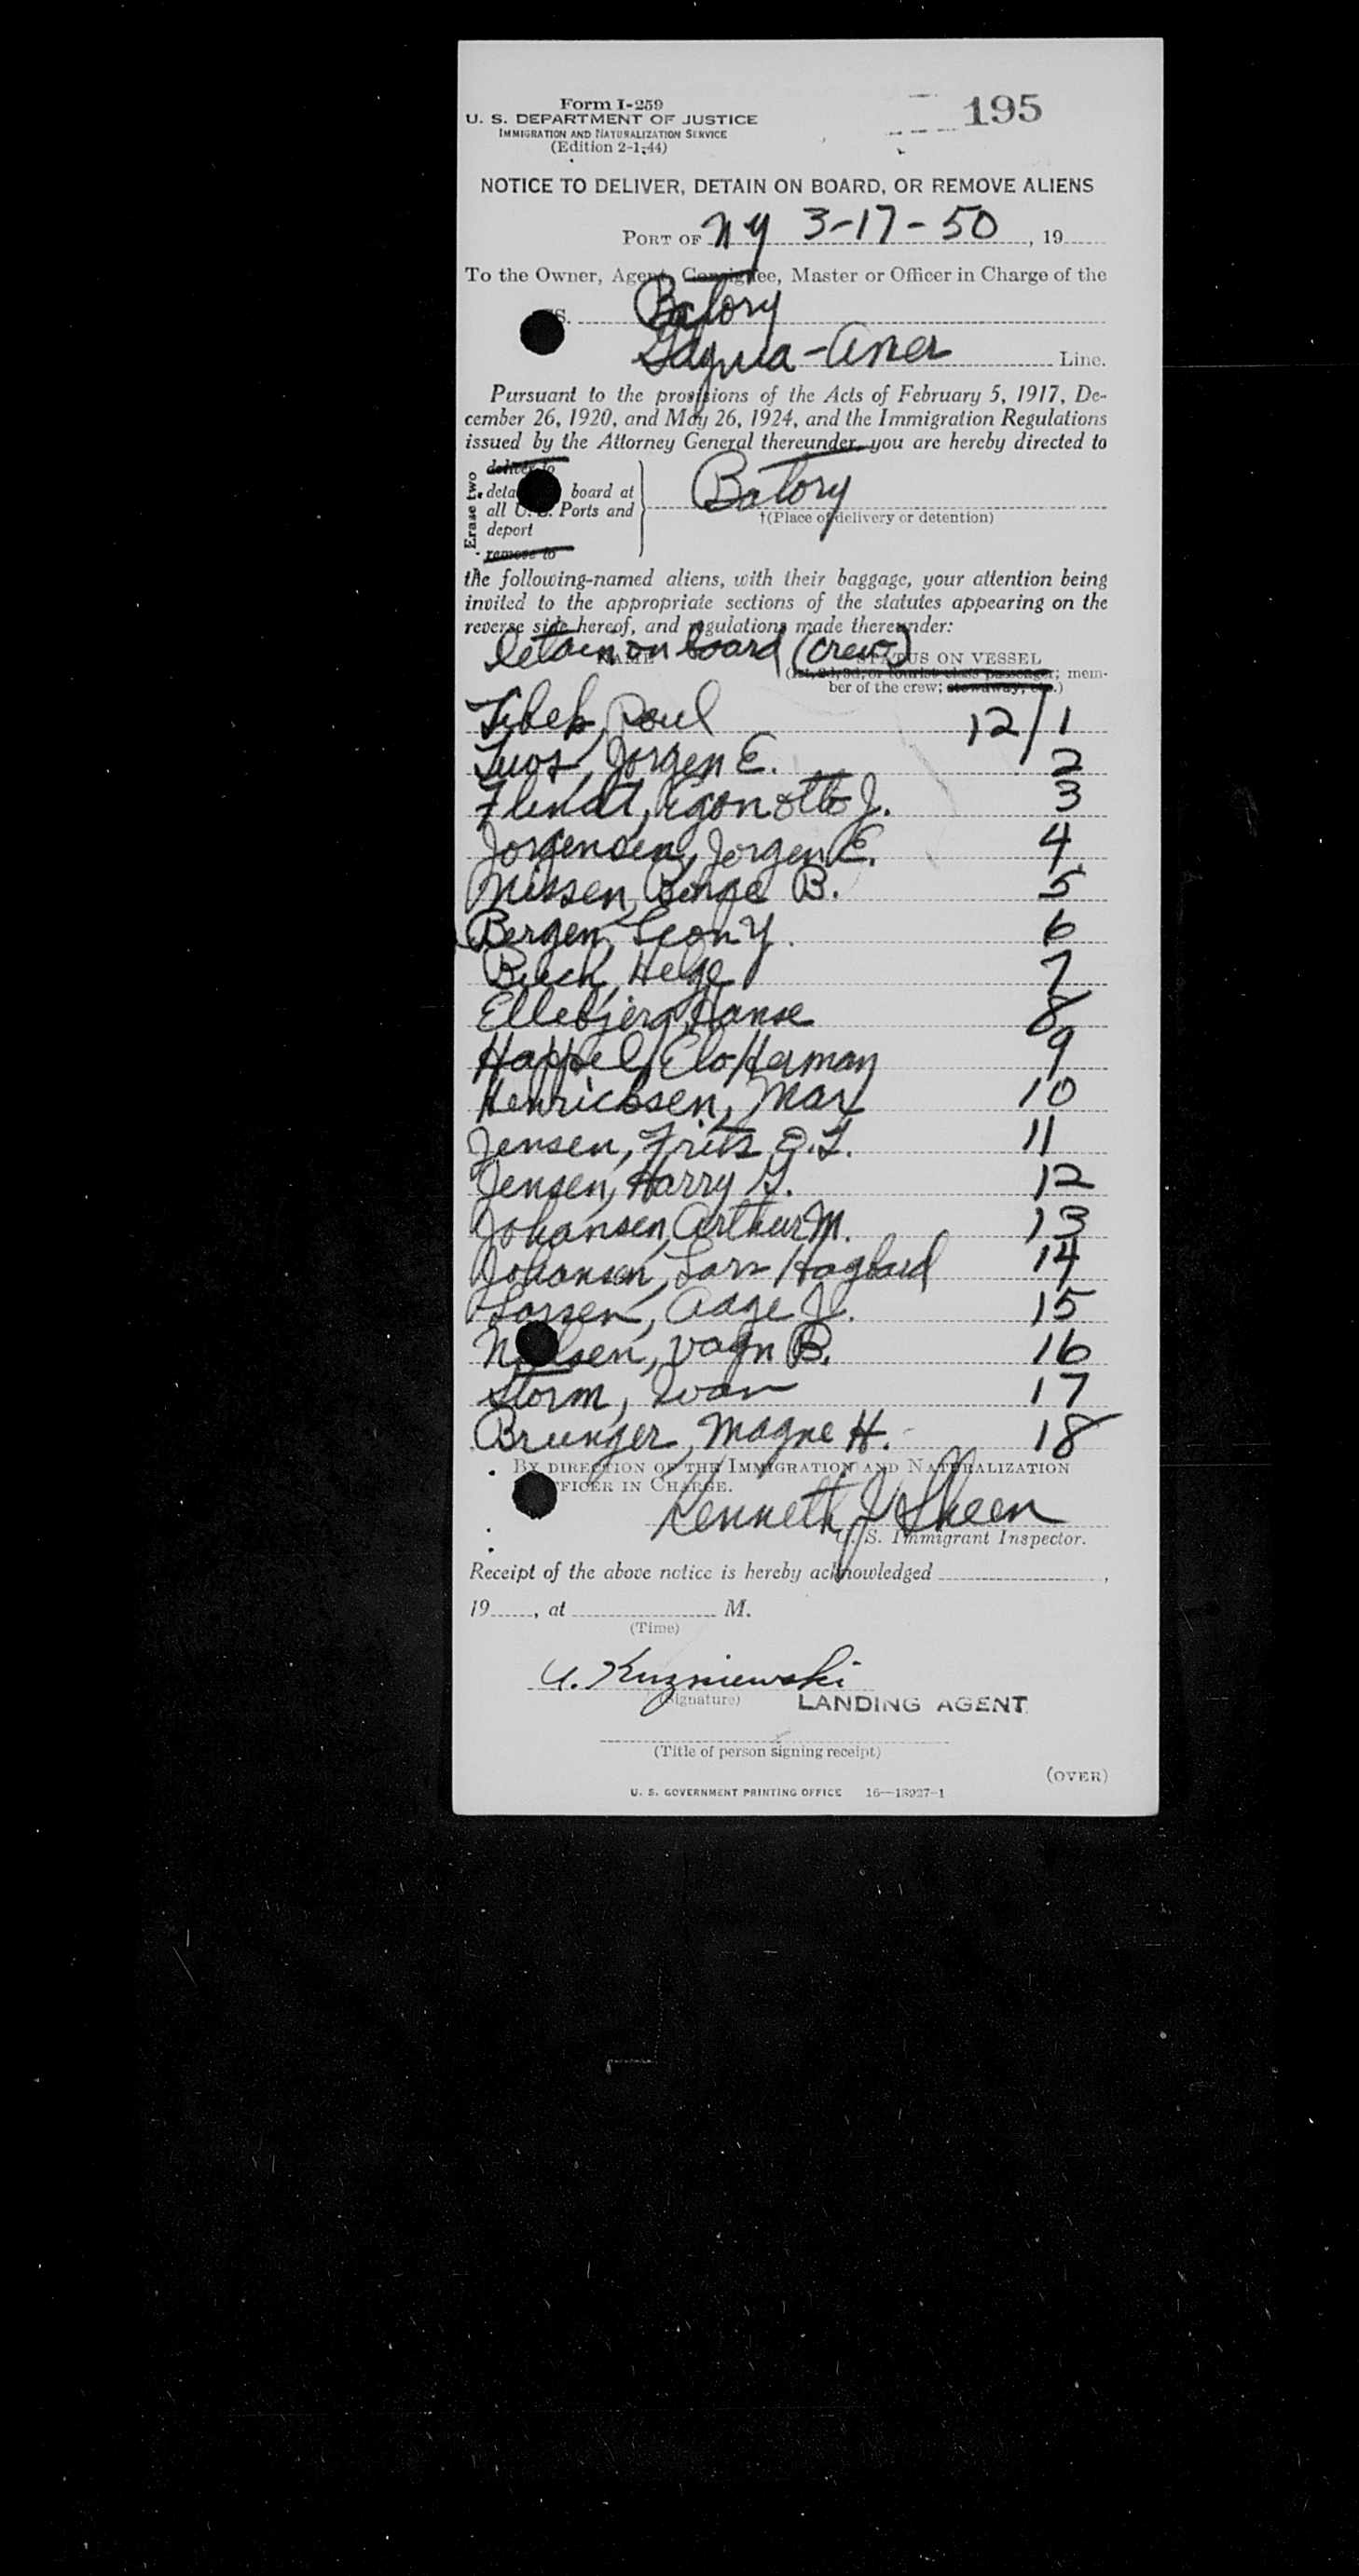 Form I-259
195
U. S. DEPARTMENT OF JUSTICE
IMMIGRATION AND NATURALIZATION SERVICE
(Edition 2-1-44)
NOTICE TO DELIVER, DETAIN ON BOARD, OR REMOVE ALIENS
PORT OF NY 3-17-50, 19
To the Owner, Agent, Consignee, Master or Officer in Charge of the
S. Batory
Gdynia-Amer Line.
Pursuant to the provisions of the Acts of February 5, 1917, De-
cember 26, 1920, and May 26, 1924, and the Immigration Regulations
issued by the Attorney General thereunder, you are hereby directed to
Erase two
deliver to
board at
all U. S. Ports and
deport
remove to
Batory
†(Place of delivery or detention)
the following-named aliens, with their baggage, your attention being
invited to the appropriate sections of the statutes appearing on the
reverse side hereof, and regulations made thereunder:
Detain on board (crew)
NAME STATUS ON VESSEL
(1st, 2d, 3d, or tourist class passenger; mem-
ber of the crew; stowaway, etc.)
Poul 12/1
Jorgen E. 2
Egon Otto J. 3
Jorgensen, Jorgen E. 4
Nissen, B. 5
Bergen, Leon Y. 6
Helge 7
Ellebjerg, Hanse 8
Happel, Elo Herman 9
Henricksen, Max 10
Jensen, Frits E.T. 11
Jensen, Harry G. 12
Johansen, Arthur M. 13
Johansen, Lars Hagbard 14
Larsen, Aage J. 15
Nielsen, Vagn B. 16
Storm, Ivan 17
Brunger, Magne H. 18
BY DIRECTION OF THE IMMIGRATION AND NATURALIZATION
OFFICER IN CHARGE.
Kenneth J Sheen
U. S. Immigrant Inspector.
Receipt of the above notice is hereby acknowledged ,
19 , at M.
(Time)
Kuzniewski
(Signature) LANDING AGENT
(Title of person signing receipt)
(OVER)
U. S. GOVERNMENT PRINTING OFFICE 16—18927-1